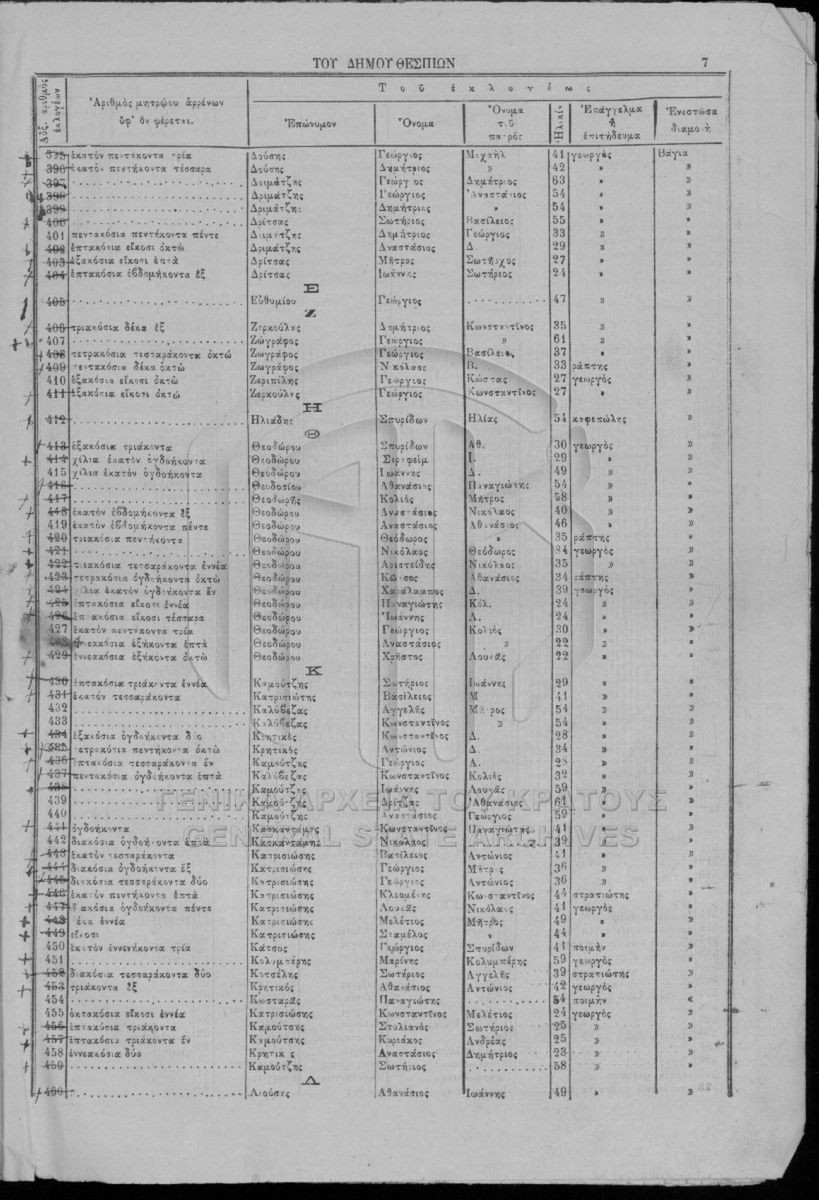 ΤΟΥ ΔΗΜΟΥ ΘΕΣΠΙΩΝ 7
Αὔξ. ἀριθμὸς ἐκλογέων
Ἀριθμὸς μητρῴου ἀρρένων ὑφ' ὃν φέρεται.
Τοῦ ἐκλογέως
Ἐπώνυμον Ὄνομα Ὄνομα τοῦ πατρός Ἡλικία Ἐπάγγελμα ἢ ἐπιτήδευμα Ἐνεστῶσα διαμονή
395 ἑκατὸν πεντήκοντα τρία Δούσης Γεώργιος Μιχαὴλ 41 γεωργὸς Βάγια
396 ἑκατὸν πεντήκοντα τέσσαρα Δούσης Δημήτριος » 42 » »
397 Δριμάτζης Γεώργιος Δημήτριος 63 » »
398 Δριμάτζης Γεώργιος Ἀναστάσιος 54 » »
399 Δριμάτζης Δημήτριος » 54 » »
400 Δρίτσας Σωτήριος Βασίλειος 55 » »
401 πεντακόσια πεντήκοντα πέντε Δριμάτζης Δημήτριος Γεώργιος 33 » »
402 ἑπτακόσια εἴκοσι ὀκτὼ Δριμάτζης Ἀναστάσιος Δ. 29 » »
403 ἑξακόσια εἴκοσι ἑπτὰ Δρίτσας Μῆτρος Σωτῆρχος 27 » »
404 ἑπτακόσια ἑβδομήκοντα ἓξ Δρίτσας Ἰωάννης Σωτήριος 24 » »
Ε
405 Εὐθυμίου Γεώργιος 47 » »
Ζ
406 τριακόσια δέκα ἓξ Ζερκούλης Δημήτριος Κωνσταντῖνος 35 » »
407 Ζωγράφος Γεώργιος » 61 » »
408 τετρακόσια τεσσαράκοντα ὀκτὼ Ζωγράφος Γεώργιος Βασίλειος 37 » »
409 πεντακόσια δέκα ὀκτὼ Ζωγράφος Νικόλαος Β. 33 ράπτης »
410 ἑξακόσια εἴκοσι ὀκτὼ Ζεριπίλης Γεώργιος Κώστας 27 γεωργὸς »
411 ἑξακόσια εἴκοσι ὀκτὼ Ζερκούλης Γεώργιος Κωνσταντῖνος 27 » »
Η
412 Ἠλιάδης Σπυρίδων Ἠλίας 54 καφεπώλης »
Θ
413 ἑξακόσια τριάκοντα Θεοδώρου Σπυρίδων Ἀθ. 30 γεωργὸς »
414 χίλια ἑκατὸν ὀγδοήκοντα Θεοδώρου Σεραφεὶμ Ι. 29 » »
415 χίλια ἑκατὸν ὀγδοήκοντα Θεοδώρου Ἰωάννης Δ. 49 » »
416 Θεοδοσίου Ἀθανάσιος Παναγιώτης 54 » »
417 Θεοδωρῆς Κολιὸς Μῆτρος 58 » »
418 ἑκατὸν ἑβδομήκοντα ἓξ Θεοδώρου Ἀναστάσιος Νικόλαος 40 » »
419 ἑκατὸν ἑβδομήκοντα πέντε Θεοδώρου Ἀναστάσιος Ἀθανάσιος 46 » »
420 τριακόσια πεντήκοντα Θεοδώρου Θεόδωρος » 35 ράπτης »
421 Θεοδώρου Νικόλαος Θεόδωρος 84 γεωργὸς »
422 τριακόσια τεσσαράκοντα ἐννέα Θεοδώρου Ἀριστείδης Νικόλαος 35 » »
423 τετρακόσια ὀγδοήκοντα ὀκτὼ Θεοδώρου Κῶτσος Ἀθανάσιος 34 ράπτης »
424 χίλια ἑκατὸν ὀγδοήκοντα ἓν Θεοδώρου Χαράλαμπος Δ. 39 γεωργὸς »
425 ἑπτακόσια εἴκοσι ἐννέα Θεοδώρου Παναγιώτης Κόλ. 24 » »
426 ἑπτακόσια εἴκοσι τέσσαρα Θεοδώρου Ἰωάννης Λ. 24 » »
427 ἑκατὸν πεντήκοντα τρία Θεοδώρου Γεώργιος Κολιὸς 30 » »
428 ἐννεακόσια ἑξήκοντα ἑπτὰ Θεοδώρου Ἀναστάσιος » 22 » »
429 ἐννεακόσια ἑξήκοντα ὀκτὼ Θεοδώρου Χρῆστος Λουκᾶς 22 » »
Κ
430 ἑπτακόσια τριάκοντα ἐννέα Καμούτζης Σωτήριος Ἰωάννης 29 » »
431 ἑκατὸν τεσσαράκοντα Κατρισιώτης Βασίλειος Μ 41 » »
432 Καλύβεζας Ἀγγελῆς Μῆτρος 54 » »
433 Καλύβεζας Κωνσταντῖνος » 54 » »
434 ἑξακόσια ὀγδοήκοντα δύο Κρητικὸς Κωνσταντῖνος Δ. 28 » »
435 τετρακόσια πεντήκοντα ὀκτὼ Κρητικὸς Ἀντώνιος Δ. 34 » »
436 ἑπτακόσια τεσσαράκοντα ἓν Καμούτζης Γεώργιος Α. 28 » »
437 πεντακόσια ὀγδοήκοντα ἑπτὰ Καλύβεζας Κωνσταντῖνος Κολιὸς 32 » »
438 Καμούτζης Ἰωάννης Λουκᾶς 59 » »
439 Καμούτζης Δρίτζας Ἀθανάσιος 61 » »
440 Καμούτζης Ἀναστάσιος Γεώργιος 59 » »
441 ὀγδοήκοντα Κασκαντάμης Κωνσταντῖνος Παναγιώτης 41 » »
442 διακόσια ὀγδοήκοντα ἑπτὰ Κασκαντάμης Νικόλαος » 39 » »
443 ἑκατὸν τεσσαράκοντα Κατρισιώσης Βασίλειος Ἀντώνιος 41 » »
444 διακόσια ὀγδοήκοντα ἓξ Κατρισιώσης Γεώργιος Μῆτρος 36 » »
445 διακόσια τεσσαράκοντα δύο Κατρισιώσης Γεώργιος Ἀντώνιος 36 » »
446 ἑκατὸν πεντήκοντα ἑπτὰ Κατρισιώσης Κλεομένης Κωνσταντῖνος 44 στρατιώτης »
447 διακόσια ὀγδοήκοντα πέντε Κατρισιώσης Λουκᾶς Νικόλαος 41 γεωργὸς »
448 δέκα ἐννέα Κατρισιώσης Μελέτιος Μῆτρος 49 » »
449 εἴκοσι Κατρισιώσης Σταμέλος » 44 » »
450 ἑκατὸν ἐννενήκοντα τρία Κάτσος Γεώργιος Σπυρίδων 41 ποιμὴν »
451 Κολυμπέρης Μαρίνης Κολυμπέρης 59 γεωργὸς »
452 διακόσια τεσσαράκοντα δύο Κοτσέλης Σωτήριος Ἀγγελῆς 39 στρατιώτης »
453 τριάκοντα ἓξ Κρητικὸς Ἀθανάσιος Ἀντώνιος 42 γεωργὸς »
454 Κωσταρᾶς Παναγιώτης 54 ποιμὴν »
455 ὀκτακόσια εἴκοσι ἐννέα Κατρισιώσης Κωνσταντῖνος Μελέτιος 24 γεωργὸς »
456 ἑπτακόσια τριάκοντα Καμούτσης Στυλιανὸς Σωτήριος 25 » »
457 ἑπτακόσια τριάκοντα ἓν Καμούτσης Κυριάκος Ἀνδρέας 25 » »
458 ἐννεακόσια δύο Κρητικὸς Ἀναστάσιος Δημήτριος 23 » »
459 Καμούτζης Σωτήριος 58 » »
Λ
460 Λιούσης Ἀθανάσιος Ἰωάννης 49 » »
ΓΕΝΙΚΑ ΑΡΧΕΙΑ ΤΟΥ ΚΡΑΤΟΥΣ
GENERAL STATE ARCHIVES